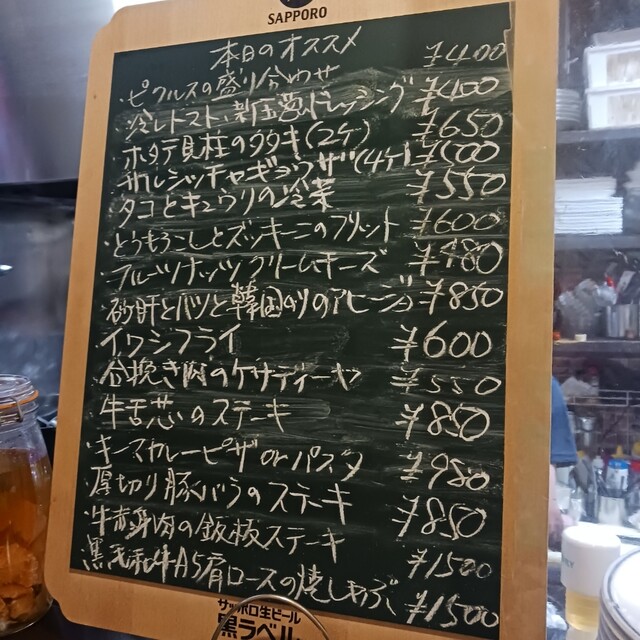 SAPPORO
本日のオススメ
・ピクルスの盛り合わせ ¥400
・冷しトマト、新玉葱ドレッシング ¥400
・ホタテ貝柱のタタキ(2ケ) ¥650
・サルシッチャギョウザ(4ケ) ¥600
・タコとキュウリの冷菜 ¥550
・とうもろこしとズッキーニのフリット ¥600
・フルーツナッツクリームチーズ ¥480
・砂肝とハツと韓国のアヒージョ ¥850
・イワシフライ ¥600
・合挽き肉のケサディーヤ ¥550
・牛舌芯のステーキ ¥850
・キーマカレーピザorパスタ ¥980
・厚切り豚バラのステーキ ¥850
・牛赤身肉の鉄板ステーキ ¥1500
・黒毛和牛A5肩ロースの焼しゃぶ ¥1500
サッポロ生ビール
黒ラベル